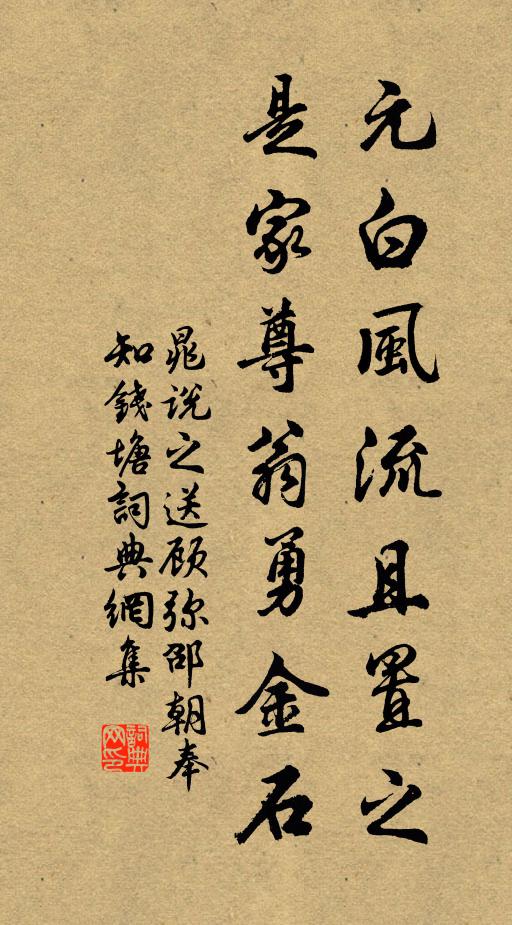 元白風流且置之
是家尊翁勇金石
晁說之送顾弥邵朝奉
知錢塘詞典網集
詞典
网印